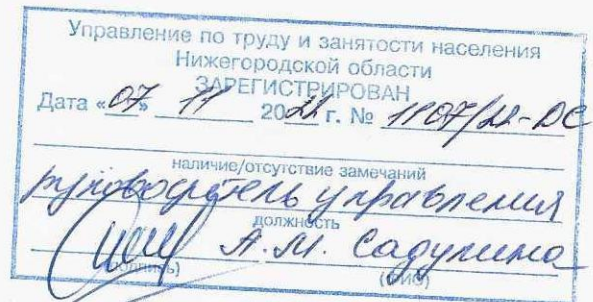 Управление по труду и занятости населения
Нижегородской области
ЗАРЕГИСТРИРОВАН
Дата «07» 11 2022 г. № 1107/22-ДС
наличие/отсутствие замечаний
руководитель управления
должность
А.М. Садулина
(подпись) (ФИО)